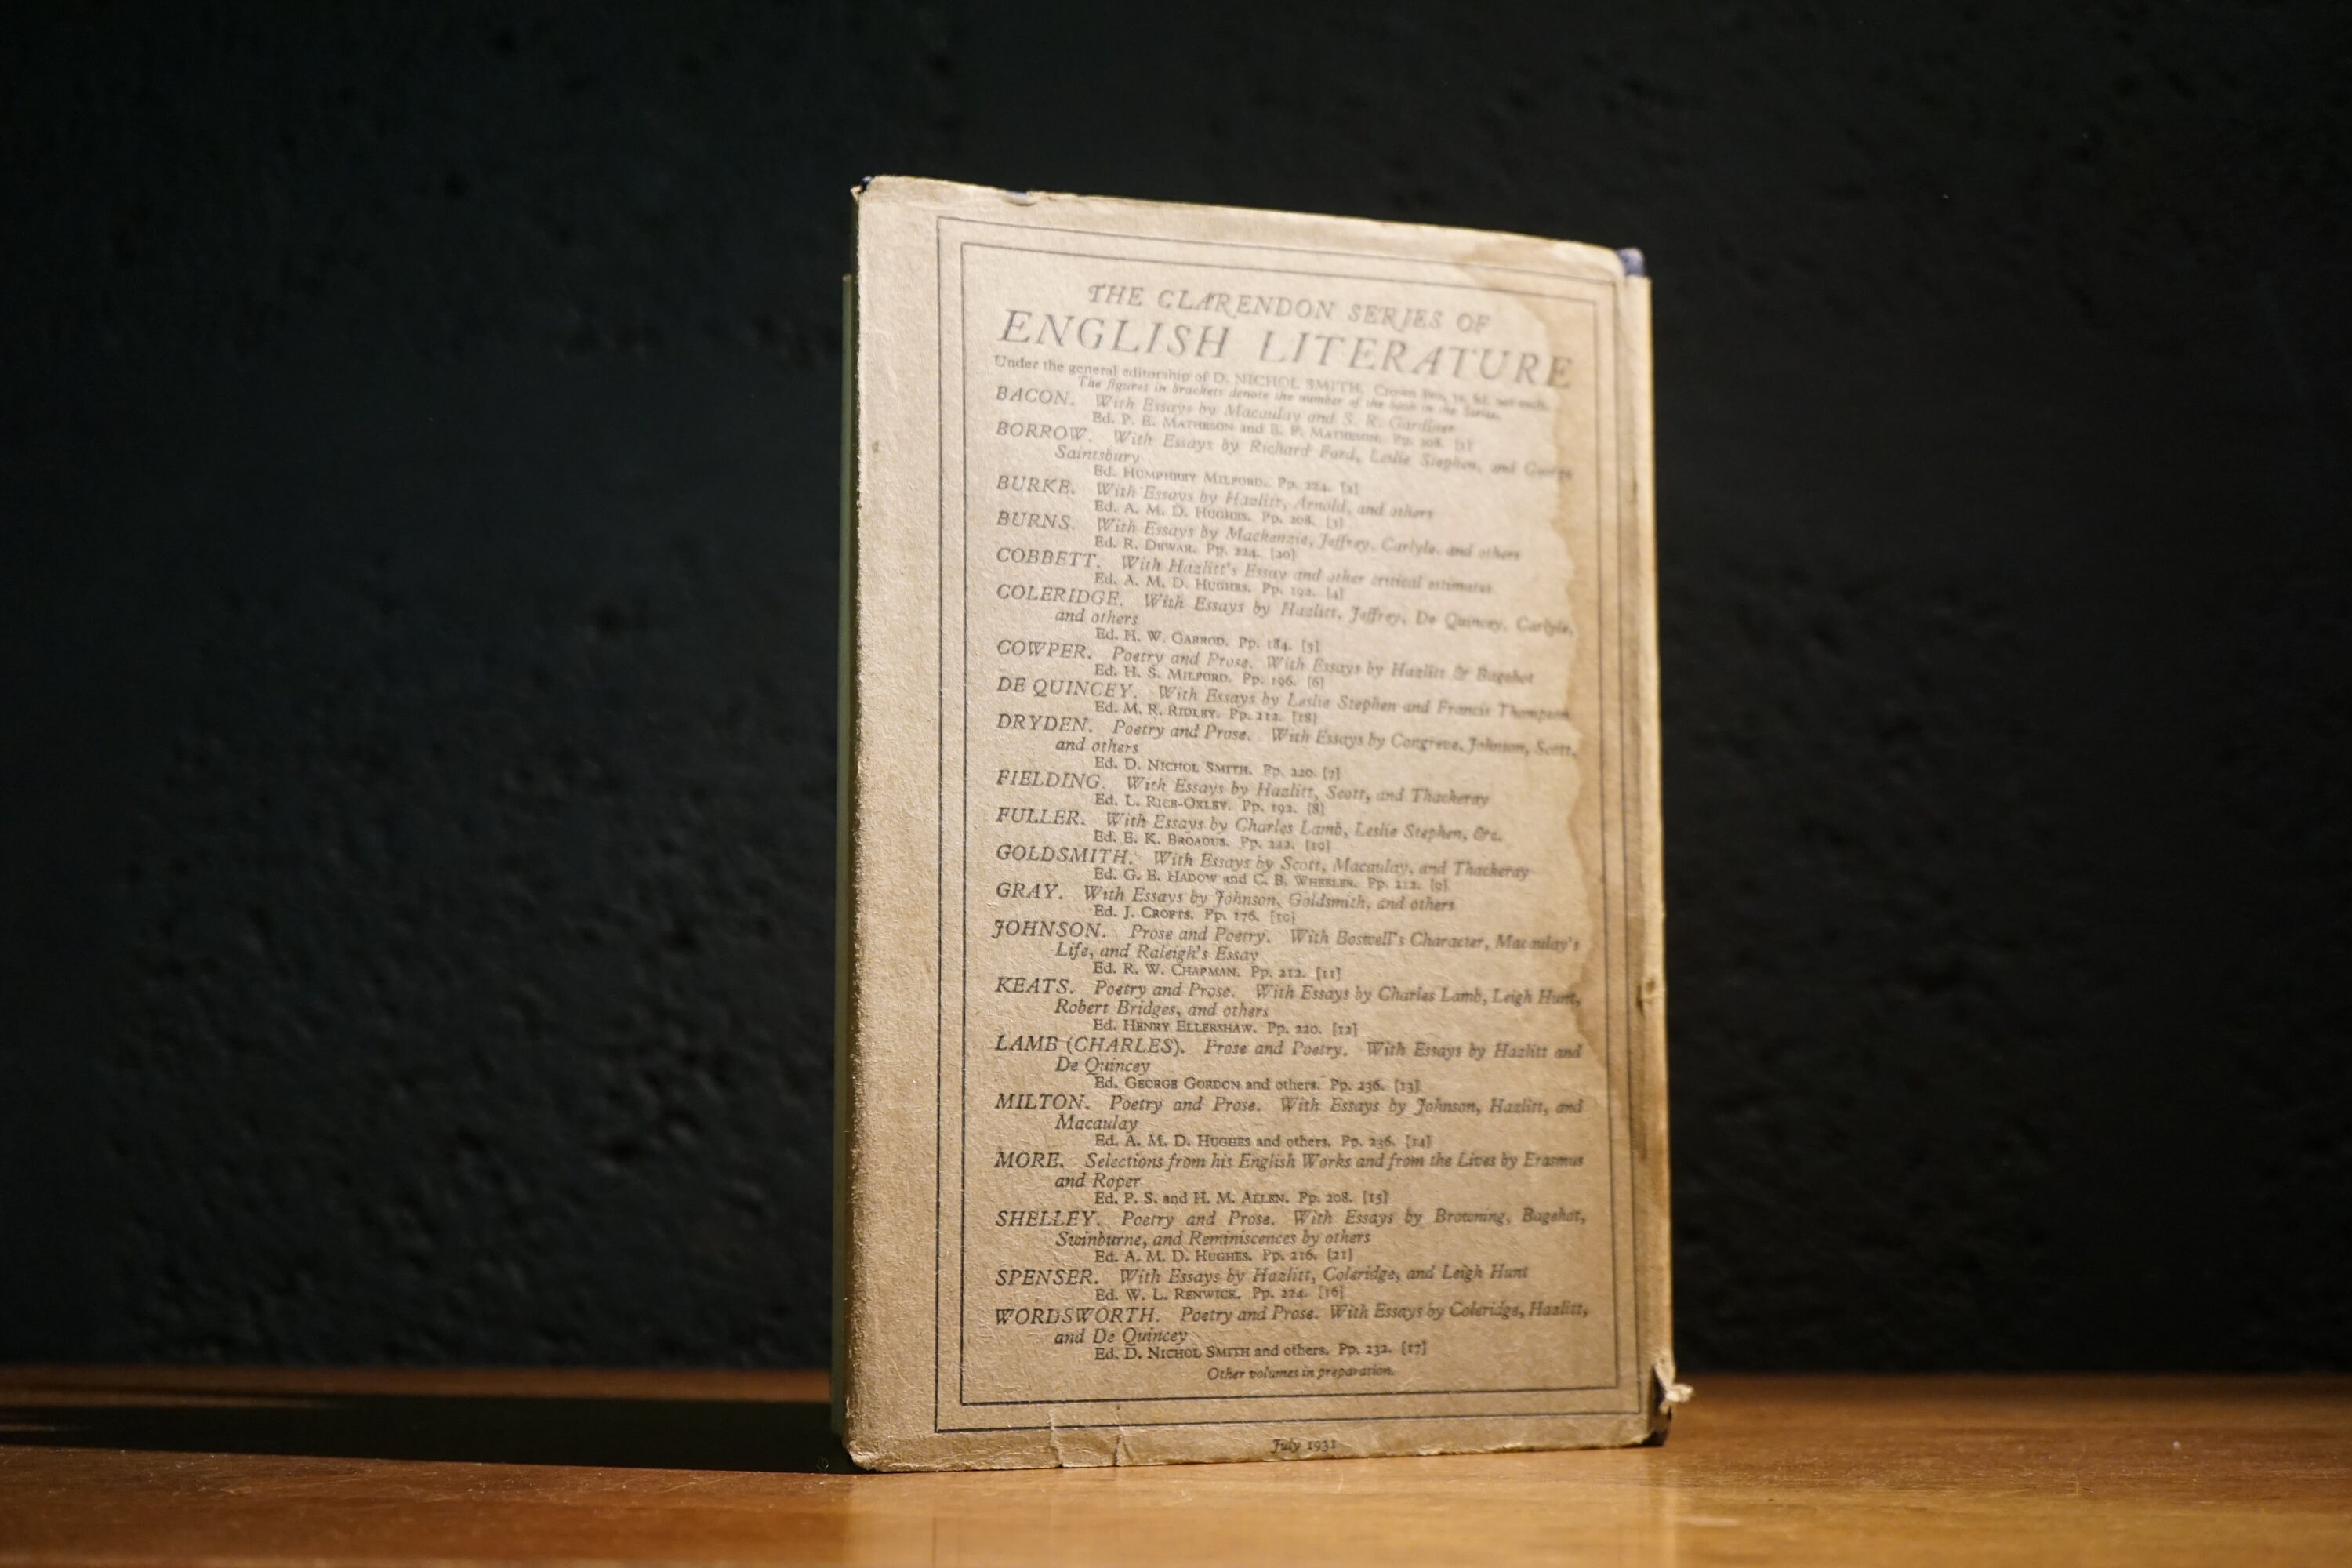 THE CLARENDON SERIES OF
ENGLISH LITERATURE
Under the general editorship of D. NICHOL SMITH. Crown 8vo, net each.
The figures in brackets denote the number of the book in the Series.
BACON. With Essays by Macaulay and S. R. Gardiner
Ed. P. E. MATHESON and E. F. MATHESON. Pp. 208. [1]
BORROW. With Essays by Richard Ford, Leslie Stephen, and George
Saintsbury
Ed. HUMPHREY MILFORD. Pp. 224. [2]
BURKE. With Essays by Hazlitt, Arnold, and others
Ed. A. M. D. HUGHES. Pp. 208. [3]
BURNS. With Essays by Mackenzie, Jeffrey, Carlyle, and others
Ed. R. DEWAR. Pp. 224. [20]
COBBETT. With Hazlitt's Essay and other critical estimates
Ed. A. M. D. HUGHES. Pp. 192. [4]
COLERIDGE. With Essays by Hazlitt, Jeffrey, De Quincey, Carlyle,
and others
Ed. H. W. GARROD. Pp. 184. [5]
COWPER. Poetry and Prose. With Essays by Hazlitt & Bagehot
Ed. H. S. MILFORD. Pp. 196. [6]
DE QUINCEY. With Essays by Leslie Stephen and Francis Thompson
Ed. M. R. RIDLEY. Pp. 212. [18]
DRYDEN. Poetry and Prose. With Essays by Congreve, Johnson, Scott,
and others
Ed. D. NICHOL SMITH. Pp. 220. [7]
FIELDING. With Essays by Hazlitt, Scott, and Thackeray
Ed. L. RICE-OXLEY. Pp. 192. [8]
FULLER. With Essays by Charles Lamb, Leslie Stephen, &c.
Ed. E. K. BROADUS. Pp. 222. [19]
GOLDSMITH. With Essays by Scott, Macaulay, and Thackeray
Ed. G. E. HADOW and C. B. WHEELER. Pp. 212. [9]
GRAY. With Essays by Johnson, Goldsmith, and others
Ed. J. CROFTS. Pp. 176. [10]
JOHNSON. Prose and Poetry. With Boswell's Character, Macaulay's
Life, and Raleigh's Essay
Ed. R. W. CHAPMAN. Pp. 212. [11]
KEATS. Poetry and Prose. With Essays by Charles Lamb, Leigh Hunt,
Robert Bridges, and others
Ed. HENRY ELLERSHAW. Pp. 220. [12]
LAMB (CHARLES). Prose and Poetry. With Essays by Hazlitt and
De Quincey
Ed. GEORGE GORDON and others. Pp. 236. [13]
MILTON. Poetry and Prose. With Essays by Johnson, Hazlitt, and
Macaulay
Ed. A. M. D. HUGHES and others. Pp. 236. [14]
MORE. Selections from his English Works and from the Lives by Erasmus
and Roper
Ed. P. S. and H. M. ALLEN. Pp. 208. [15]
SHELLEY. Poetry and Prose. With Essays by Browning, Bagehot,
Swinburne, and Reminiscences by others
Ed. A. M. D. HUGHES. Pp. 216. [21]
SPENSER. With Essays by Hazlitt, Coleridge, and Leigh Hunt
Ed. W. L. RENWICK. Pp. 224. [16]
WORDSWORTH. Poetry and Prose. With Essays by Coleridge, Hazlitt,
and De Quincey
Ed. D. NICHOL SMITH and others. Pp. 232. [17]
Other volumes in preparation.
July 1931